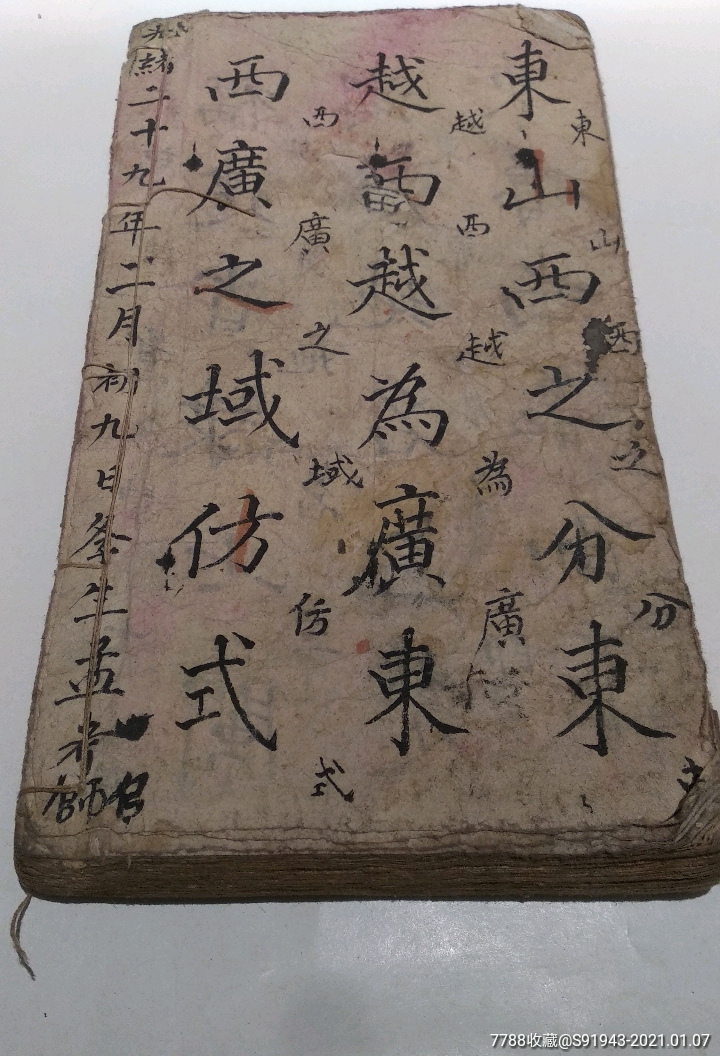 東山西之分東
東山西之分
越西越為廣東
越西越為廣
西廣之域仿式
西廣之域仿式
光緒二十九年二月初九日
生孟
師
7788收藏@S91943-2021.01.07